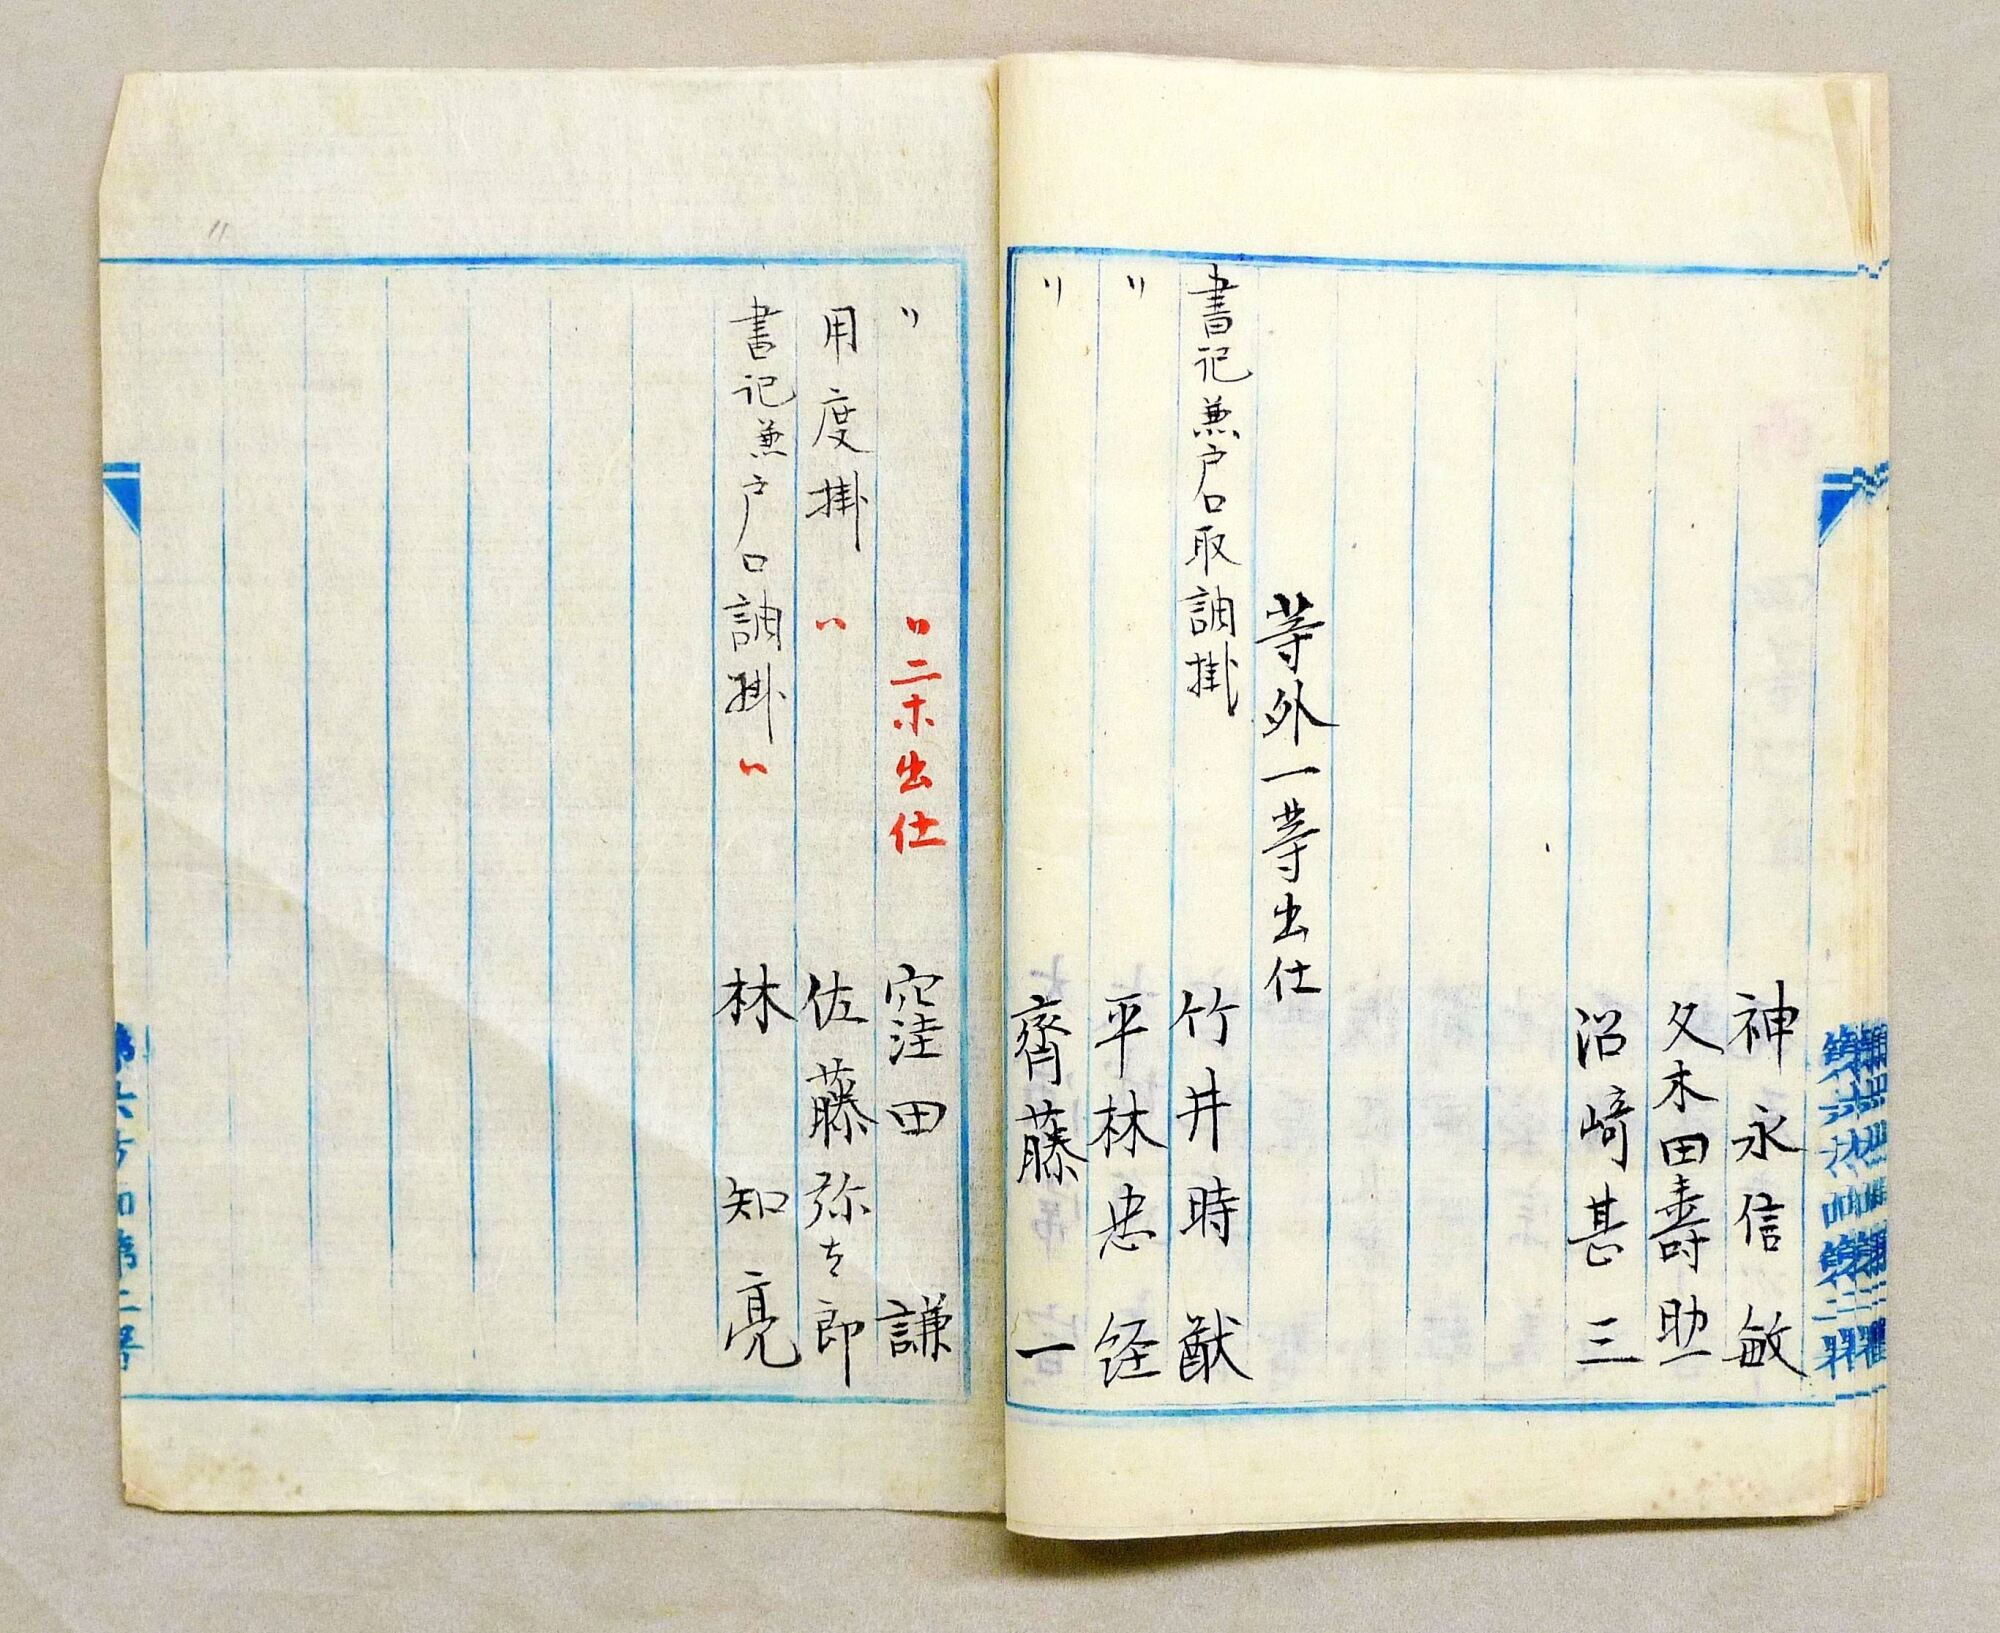 神永信敏
久木田壽助
沼﨑甚三
等外一等出仕
書記兼戸口取調掛 竹井時猷
〃 平林忠経
〃 齊藤一
〃 〃二木出仕 窪田謙
用度掛 〃 佐藤弥太郎
書記兼戸口調掛 〃 林知亮
第六方面第二署